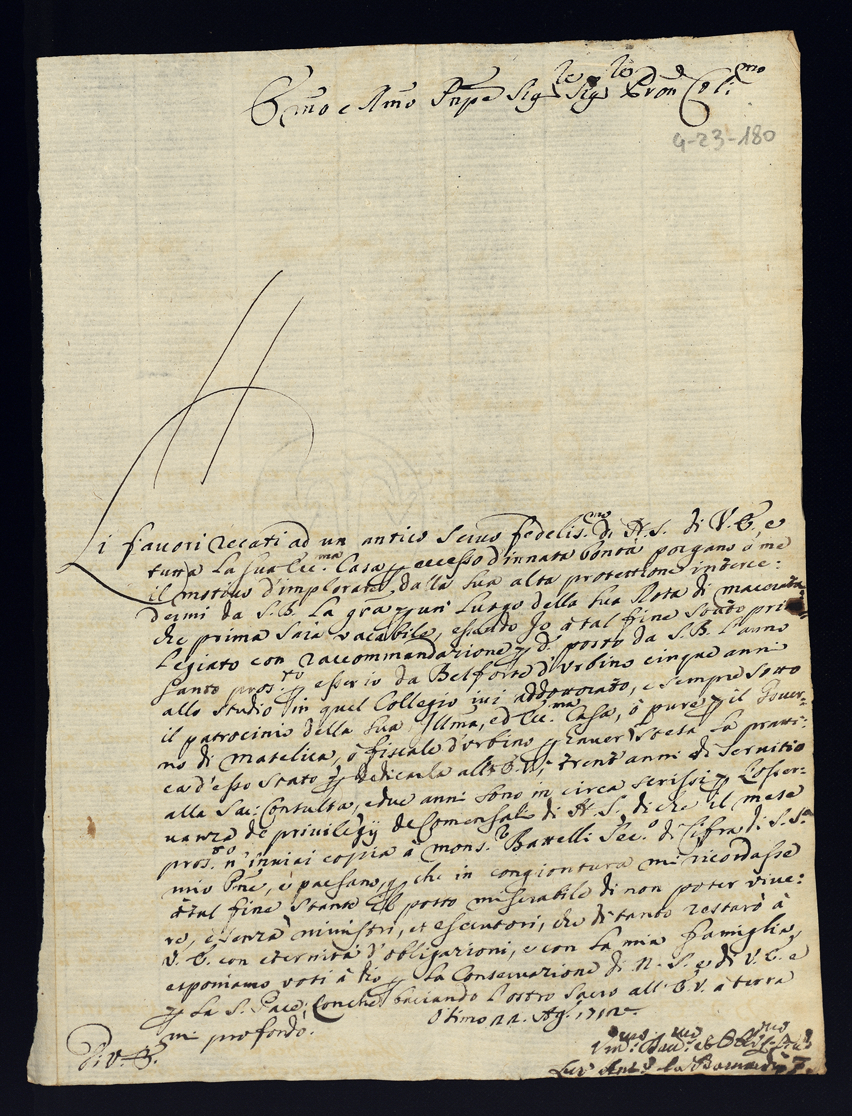 E.mo e R.mo Pnpe Sig.re Sig.re Pron Col.mo
4-23-180
Li favori recati ad un antico seruo fedelis.mo di N. S. di V. E. e
tutta la sua Ecc.ma Casa eccesso d'innata bontà porgano à me
il motiuo d'implorare dalla sua alta protettione interce:
dermi da S. B. la gra un luogo della sua Rota di macerata
che prima saia vacabile, essendo Io à tal fine stato pri
legiato con raccommandazione posto da S. B. l'anno
santo pros.to esser io da Belforte d'Urbino cinque anni
allo studio in quel Collegio iui addotorato, e sempre sotto
il patrocinio della sua Illma, ed Ecc.ma Casa, ò pure il Gouer
no di matelica, ò fiscale d'Urbino hauer la pratti:
ca d'esso stato dedicarla all' E. V., trent'anni di seruitio
alla Sac: Consulta, e due anni sono in circa scrissi l'osser
uanza de priuilegij de Comensali di N. S. di che il mese
pros.to n'inuiai copia à mons.re Battelli Sec.o di Cifra di S. S.
mio Pne, e paesano, che in congiontura mi ricordasse
à tal fine stante posto miserabile di non poter viue:
re, e senza ministri, et essecutori, che di tanto restarò à
V. E. con eternità d'obligazioni, e con la mia famiglia
esponiamo voti à Dio la Conseruazione di N. S. e di V. E. e
la S. Pace, baciando l'ostro sacro all' E. V. à terra
mi profondo.
Osimo Ag. 1712
Di V. E.